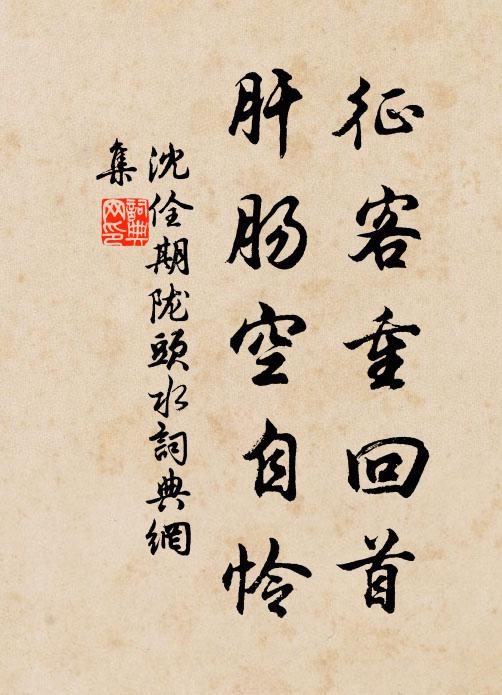 征客重回首
肝肠空自怜
沈佺期陇頭水詞典網
集
詞典网印